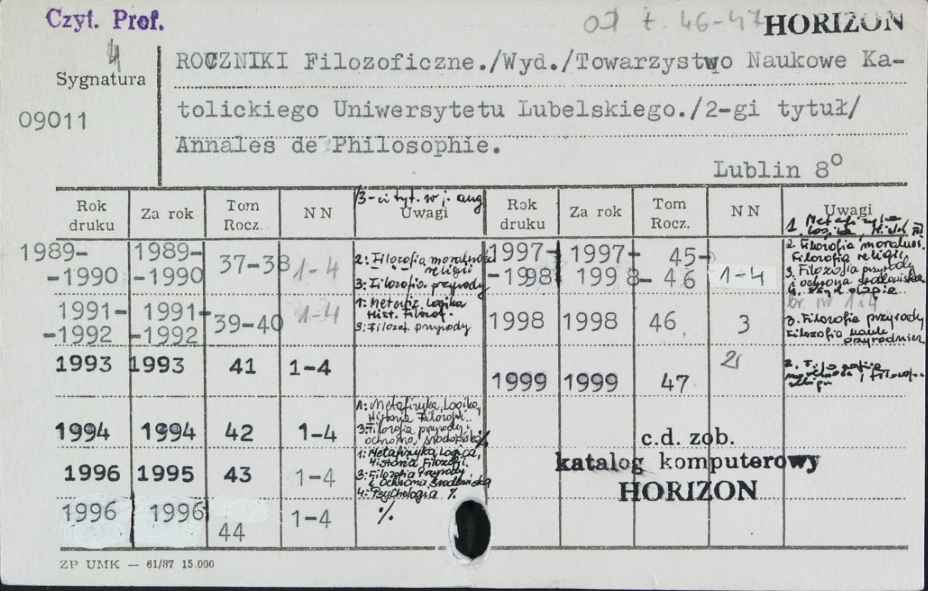 Czyt. Prof.
od t. 46-47
HORIZON
4
Sygnatura
09011
ROCZNIKI Filozoficzne./Wyd./Towarzystwo Naukowe Ka-
tolickiego Uniwersytetu Lubelskiego./2-gi tytuł/
Annales de Philosophie.
Lublin 8°
3-ci tyt. w j. ang
Rok druku Za rok Tom Rocz. NN Uwagi Rok druku Za rok Tom Rocz. NN Uwagi
1989-
-1990 1989-
-1990 37-38 1-4
2: Filozofia moralności
religii
3: Filozofia przyrody
1991-
-1992 1991-
-1992 39-40 1-4
1: Metafiz. Logika
Hist. Filozof.
3: Filozof. przyrody
1993 1993 41 1-4
1994 1994 42 1-4
1: Metafizyka, Logika,
Historia Filozofii
3: Filozofia przyrody i
ochrona środowiska
1996 1995 43 1-4
1: Metafizyka, Logika,
Historia Filozofii.
3: Filozofia Przyrody
i Ochrona Środowiska
4: Psychologia %
1996 1996 44 1-4 %
1997-
-1998 1997-
1998- 45-
46 1-4
1. Metafizyka
Logika, Hist. Fil
2. Filozofia moralnoś.
Filozofia religii,
3. Filozofia przyrody
i ochrona środowiska
4. Psychologia
br nr 1-4
1998 1998 46 3
3. Filozofia przyrody
Filozofia nauk
przyrodnicz
1999 1999 47 2
c.d. zob.
katalog komputerowy
HORIZON
ZP UMK — 61/87 15.000